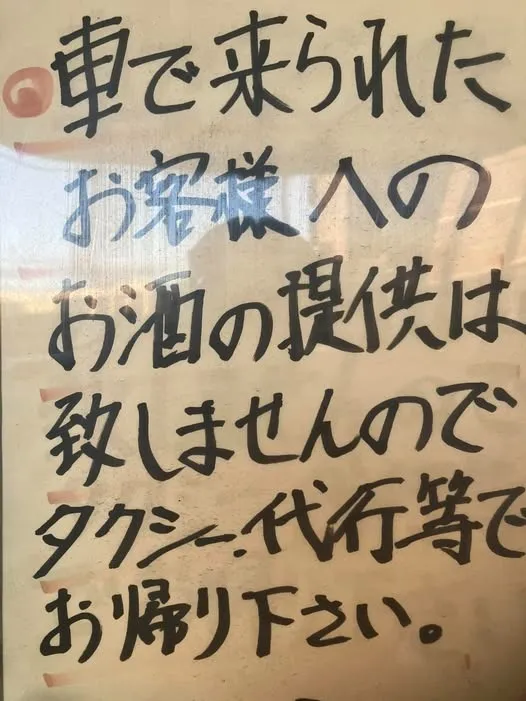 ◎車で来られた
お客様への
お酒の提供は
致しませんので
タクシー.代行等で
お帰り下さい。